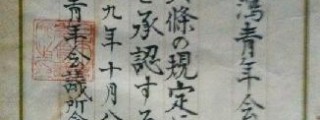 潟青年会
條の規定に
を承認する
九年十月
青年会議所会